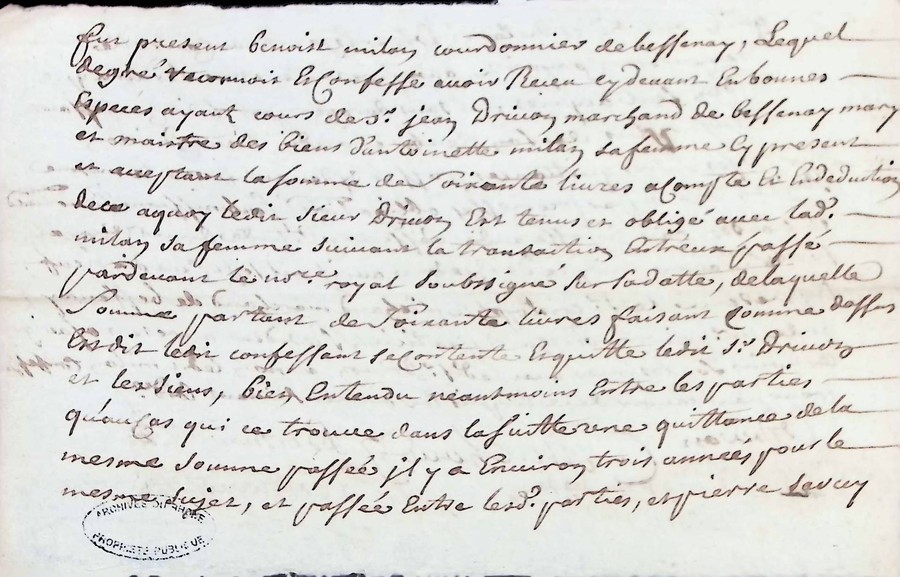 fut present benoist milan courdonnier de bessenay, Lequel
de gré reconnoit Et Confesse avoir Receu cy devant En bonnes
Especes ayant cours de sr. jean Drivon marchand de bessenay mary
et maistre des biens d'antoinette milan sa femme Cy present
et acceptant la somme de soixante livres a Compte Et En deduction
de ce aquoy ledit sieur Drivon Est tenus et obligé avec lad.
milan sa femme suivant la transaction Entreux passé
pardevant le nore. royal soubssigné sur sa datte, de laquelle
somme partant de soixante livres faisant comme dessus
Est dit ledit confessant se Contente Et quitte ledit sr. Drivon
et les siens, bien Entendu neantmoins Entre les parties
qu'au Cas qui ce trouve dans la suitte une quittance de la
mesme somme passée jl y a Environ trois années pour le
mesme sujet, et passée Entre lesd. parties, et pierre
ARCHIVES DU RHÔNE
PROPRIÉTÉ PUBLIQUE